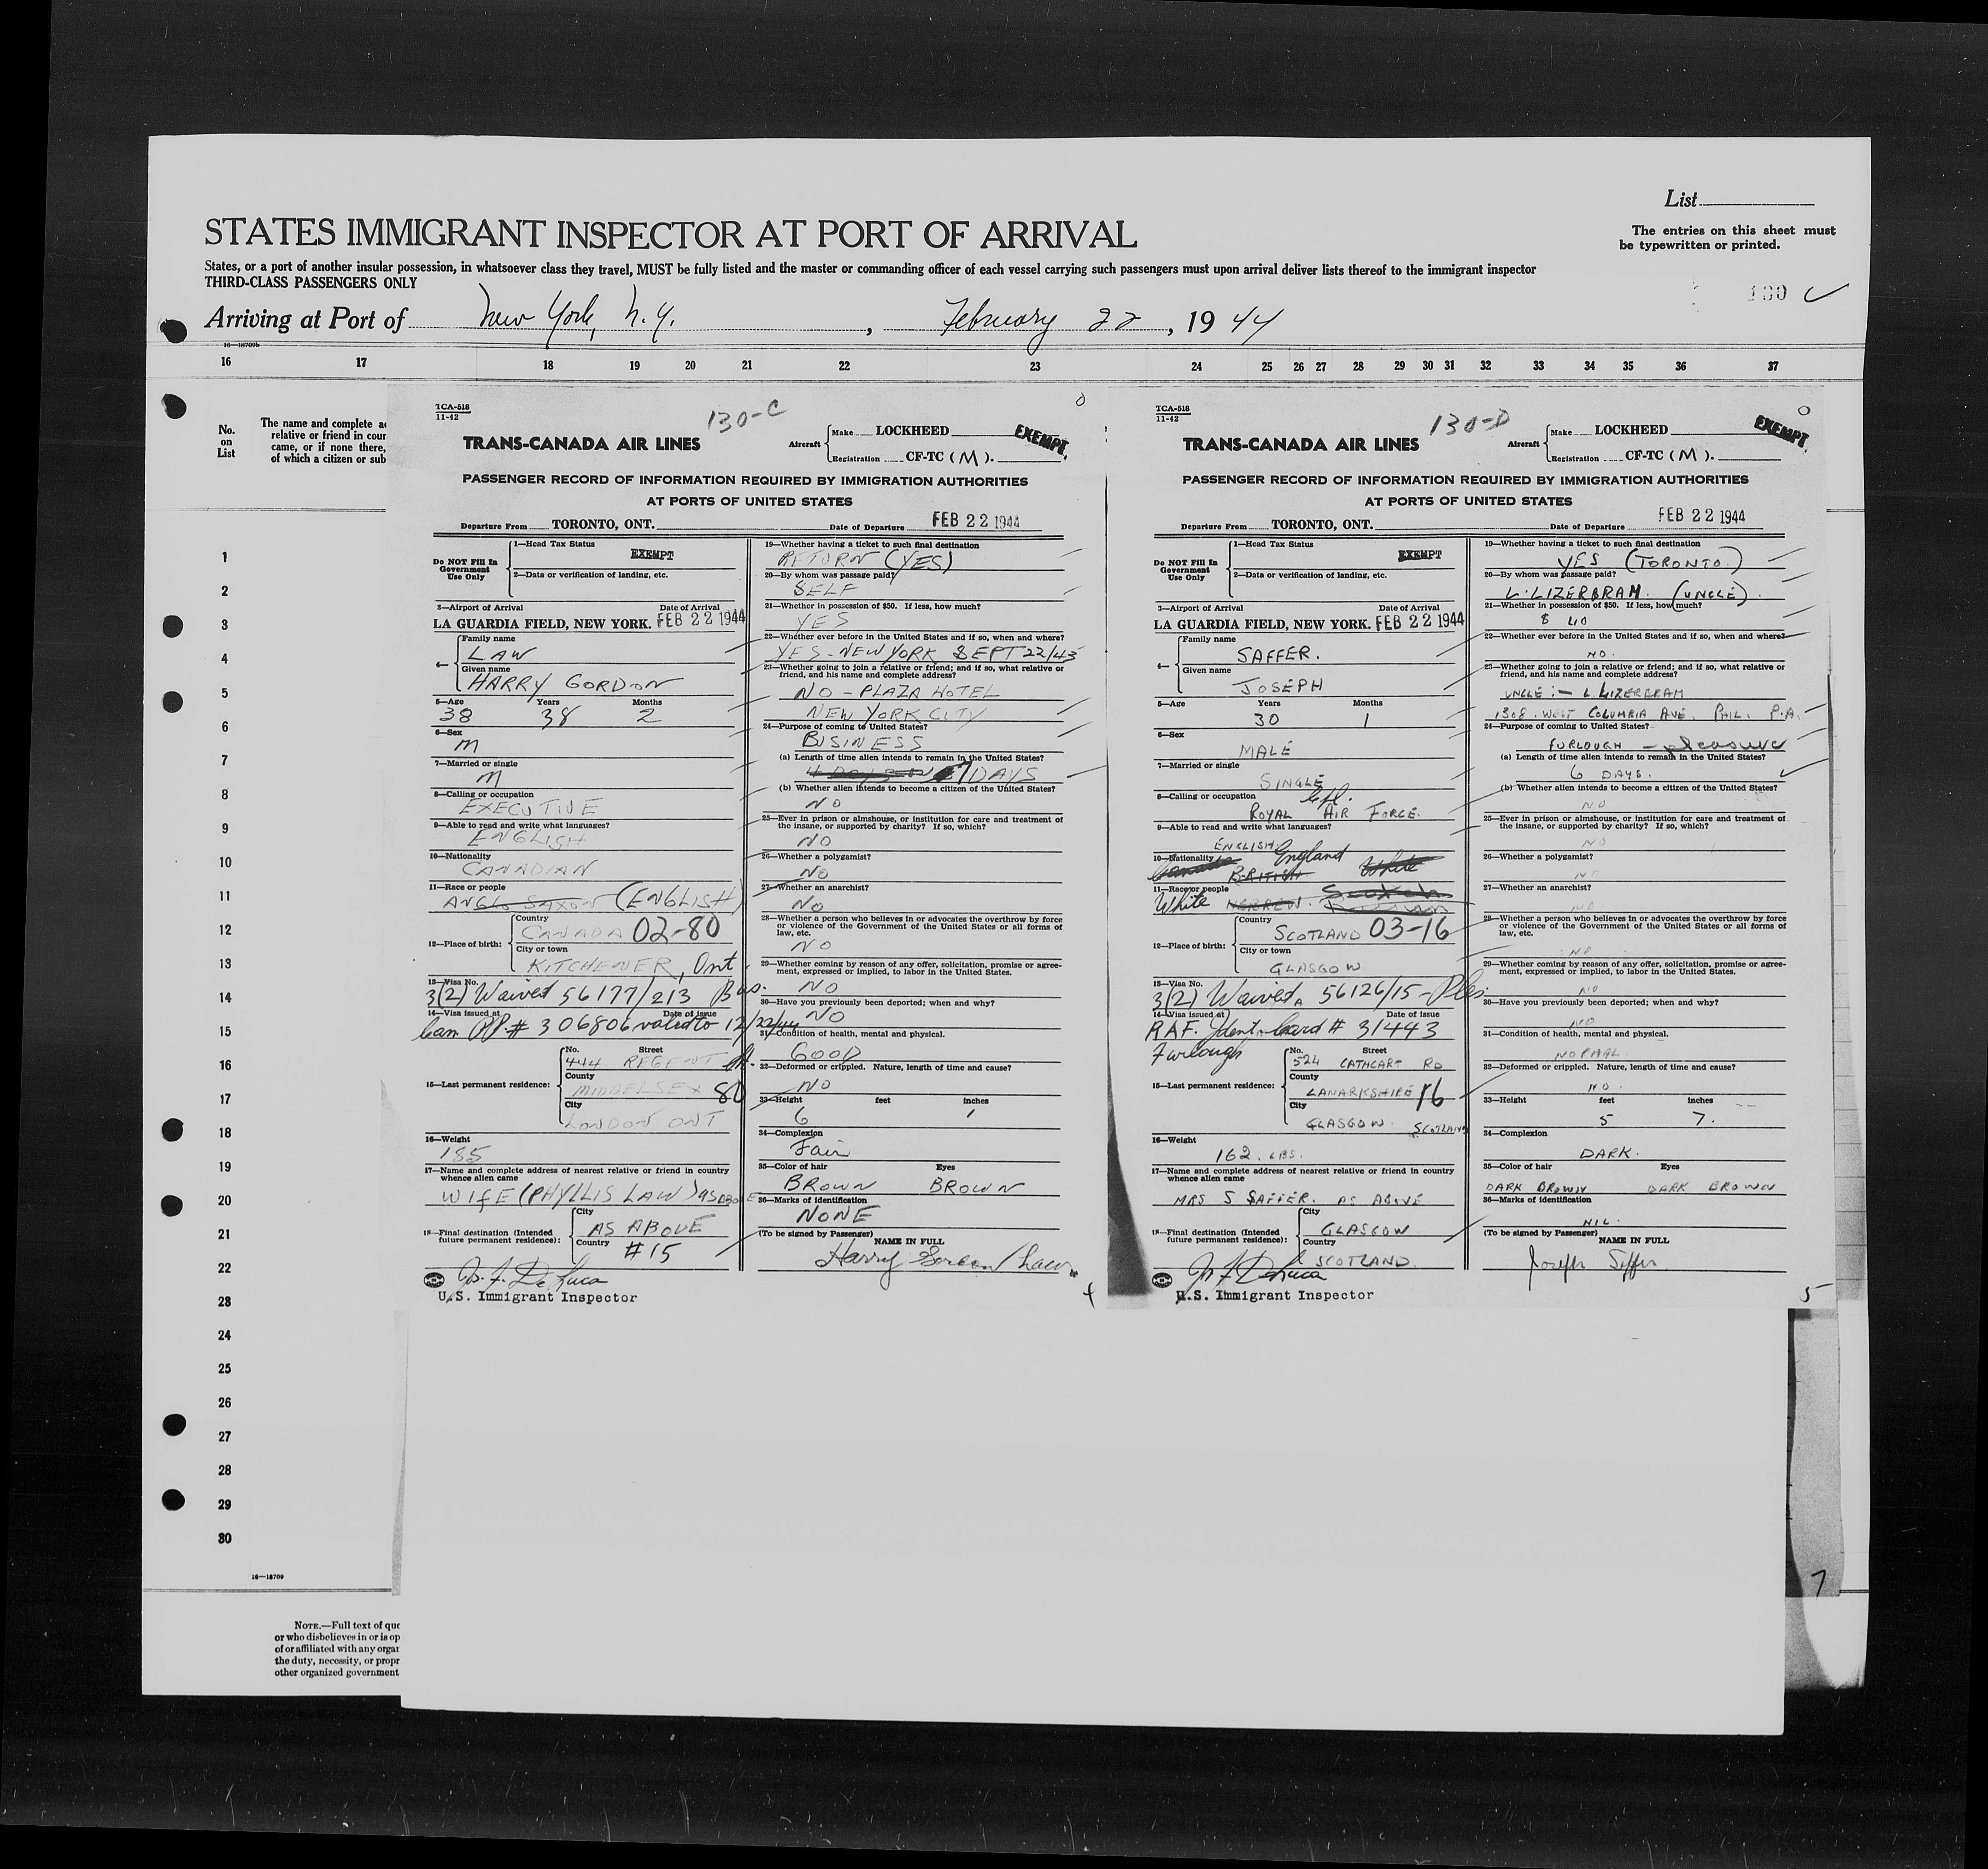 List
STATES IMMIGRANT INSPECTOR AT PORT OF ARRIVAL
The entries on this sheet must
be typewritten or printed.
States, or a port of another insular possession, in whatsoever class they travel, MUST be fully listed and the master or commanding officer of each vessel carrying such passengers must upon arrival deliver lists thereof to the immigrant inspector
THIRD-CLASS PASSENGERS ONLY
Arriving at Port of New York, N.Y. , February 22 , 19 44
16 17 18 19 20 21 22 23 24 25 26 27 28 29 30 31 32 33 34 35 36 37
No.
on
List
The name and complete
relative or friend in cour
came, or if none there,
of which a citizen or sub
1
2
3
4
5
6
7
8
9
10
11
12
13
14
15
16
17
18
19
20
21
22
23
24
25
26
27
28
29
30
16—18709
NOTE.—Full text of que
or who disbelieves in or is op
of or affiliated with any organ
the duty, necessity, or propr
other organized government
TCA-518
11-42
130-C
TRANS-CANADA AIR LINES
Aircraft Make LOCKHEED
Registration CF-TC (M).
EXEMPT.
PASSENGER RECORD OF INFORMATION REQUIRED BY IMMIGRATION AUTHORITIES
AT PORTS OF UNITED STATES
Departure From TORONTO, ONT. Date of Departure FEB 22 1944
Do NOT Fill In
Government
Use Only
1—Head Tax Status
EXEMPT
2—Data or verification of landing, etc.
3—Airport of Arrival Date of Arrival
LA GUARDIA FIELD, NEW YORK. FEB 22 1944
4— Family name
LAW
Given name
HARRY GORDON
5—Age Years Months
38 38 2
6—Sex
M
7—Married or single
M
8—Calling or occupation
EXECUTIVE
9—Able to read and write what languages?
ENGLISH
10—Nationality
CANADIAN
11—Race or people
ANGLO SAXON (ENGLISH)
12—Place of birth:
Country
CANADA 02-80
City or town
KITCHENER, Ont
13—Visa No.
3(2) Waived 56177/213 Bus.
14—Visa issued at Date of issue
Can PP# 306806 valid to 12/22/44
15—Last permanent residence:
No. Street
444 REGENT St.
County
MIDDELSEX 80
City
LONDON ONT
16—Weight
185
17—Name and complete address of nearest relative or friend in country
whence alien came
WIFE (PHYLLIS LAW) AS ABOVE
18—Final destination (Intended
future permanent residence):
City
AS ABOVE
Country
#15
U.S. Immigrant Inspector
19—Whether having a ticket to such final destination
RETURN (YES)
20—By whom was passage paid?
SELF
21—Whether in possession of $50. If less, how much?
YES
22—Whether ever before in the United States and if so, when and where?
YES - NEW YORK SEPT 22/43
23—Whether going to join a relative or friend; and if so, what relative or
friend, and his name and complete address?
NO - PLAZA HOTEL
NEW YORK CITY
24—Purpose of coming to United States?
BUSINESS
(a) Length of time alien intends to remain in the United States?
7 DAYS
(b) Whether alien intends to become a citizen of the United States?
NO
25—Ever in prison or almshouse, or institution for care and treatment of
the insane, or supported by charity? If so, which?
NO
26—Whether a polygamist?
NO
27—Whether an anarchist?
NO
28—Whether a person who believes in or advocates the overthrow by force
or violence of the Government of the United States or all forms of
law, etc.
NO
29—Whether coming by reason of any offer, solicitation, promise or agree-
ment, expressed or implied, to labor in the United States.
NO
30—Have you previously been deported; when and why?
NO
31—Condition of health, mental and physical.
GOOD
32—Deformed or crippled. Nature, length of time and cause?
NO
33—Height feet inches
6 1
34—Complexion
Fair
35—Color of hair Eyes
BROWN BROWN
36—Marks of identification
NONE
(To be signed by Passenger) NAME IN FULL
Harry Gordon Law
4
TCA-518
11-42
130-D
TRANS-CANADA AIR LINES
Aircraft Make LOCKHEED
Registration CF-TC (M).
EXEMPT
PASSENGER RECORD OF INFORMATION REQUIRED BY IMMIGRATION AUTHORITIES
AT PORTS OF UNITED STATES
Departure From TORONTO, ONT. Date of Departure FEB 22 1944
Do NOT Fill In
Government
Use Only
1—Head Tax Status
EXEMPT
2—Data or verification of landing, etc.
3—Airport of Arrival Date of Arrival
LA GUARDIA FIELD, NEW YORK. FEB 22 1944
4— Family name
SAFFER.
Given name
JOSEPH
5—Age Years Months
30 1
6—Sex
MALE
7—Married or single
SINGLE
8—Calling or occupation Cpl.
ROYAL AIR FORCE.
9—Able to read and write what languages?
ENGLISH
10—Nationality England
BRITISH White
11—Race or people
White HEBREW. Scotch
12—Place of birth:
Country
SCOTLAND 03-16
City or town
GLASGOW
13—Visa No.
3(2) Waived 56126/15 - Ples.
14—Visa issued at Date of issue
RAF. Ident. Card # 31443
Furlough
15—Last permanent residence:
No. Street
524 CATHCART RD
County
LANARKSHIRE 16
City
GLASGOW. SCOTLAND
16—Weight
162. LBS.
17—Name and complete address of nearest relative or friend in country
whence alien came
MRS S SAFFER. AS ABOVE
18—Final destination (Intended
future permanent residence):
City
GLASGOW
Country
SCOTLAND.
U.S. Immigrant Inspector
19—Whether having a ticket to such final destination
YES (TORONTO.)
20—By whom was passage paid?
L. LIZERBRAM. (UNCLE).
21—Whether in possession of $50. If less, how much?
$ 40
22—Whether ever before in the United States and if so, when and where?
NO.
23—Whether going to join a relative or friend; and if so, what relative or
friend, and his name and complete address?
UNCLE :- L LIZERBRAM
1308. WEST COLUMBIA AVE. PHIL. P.A.
24—Purpose of coming to United States?
FURLOUGH - pleasure
(a) Length of time alien intends to remain in the United States?
6 DAYS.
(b) Whether alien intends to become a citizen of the United States?
NO
25—Ever in prison or almshouse, or institution for care and treatment of
the insane, or supported by charity? If so, which?
NO
26—Whether a polygamist?
NO
27—Whether an anarchist?
NO
28—Whether a person who believes in or advocates the overthrow by force
or violence of the Government of the United States or all forms of
law, etc.
NO
29—Whether coming by reason of any offer, solicitation, promise or agree-
ment, expressed or implied, to labor in the United States.
NO
30—Have you previously been deported; when and why?
NO
31—Condition of health, mental and physical.
NORMAL
32—Deformed or crippled. Nature, length of time and cause?
NO.
33—Height feet inches
5 7.
34—Complexion
DARK.
35—Color of hair Eyes
DARK BROWN DARK BROWN
36—Marks of identification
NIL.
(To be signed by Passenger) NAME IN FULL
Joseph Saffer
5
7